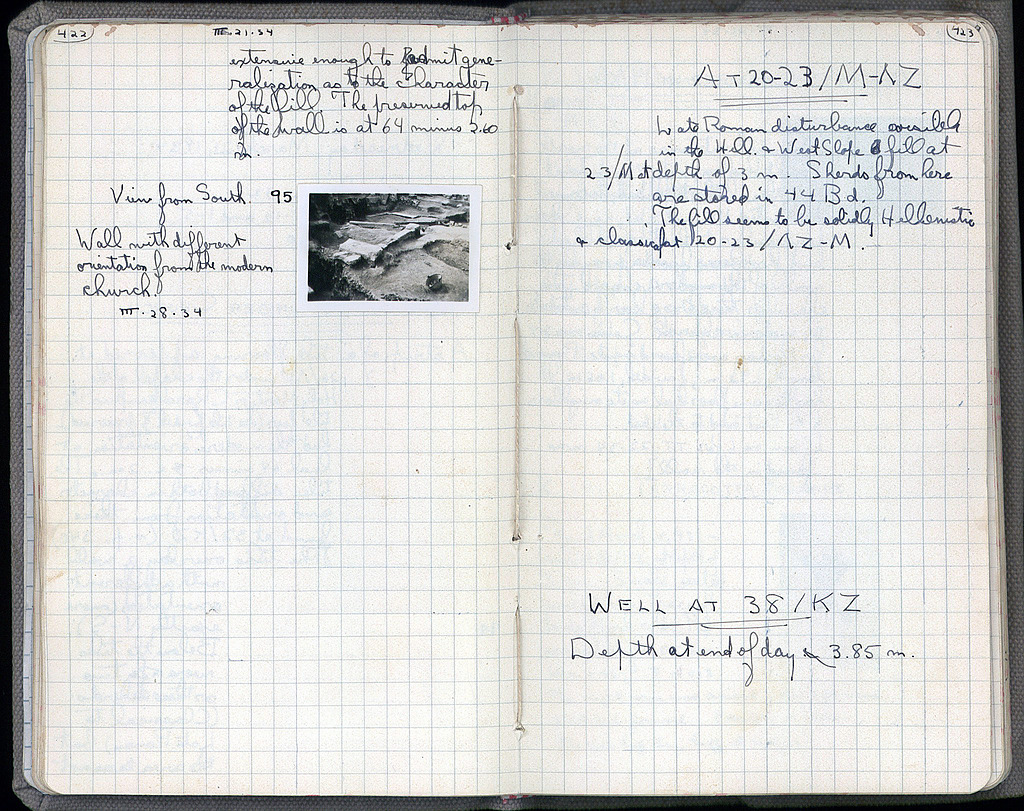 422
III-21-34
extensive enough to admit gene-
ralization as to the character
of the fill. The preserved top
of the wall is at 64 minus 2.60
m.
View from South. 95
Wall with different
orientation from the modern
church.
III-28-34
423
AT 20-23/M-ΛZ
Late Roman disturbance visible
in the Hell. & West Slope fill at
23/M at depth of 3 m. Sherds from here
are stored in 44 Bd.
The fill seems to be solidly Hellenistic
& classical at 20-23/ΛZ-M.
WELL AT 38/KZ
Depth at end of day 3.85 m.